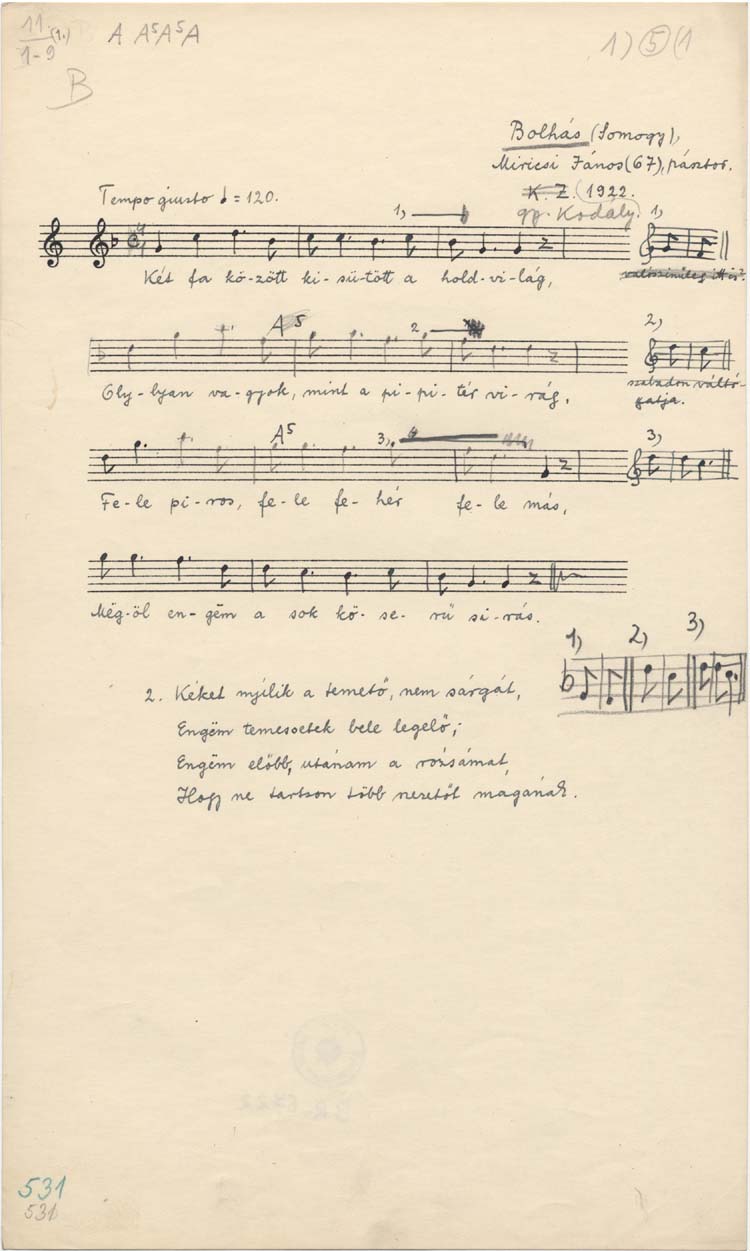 11.
1-9 (1.) A A⁵A⁵A 1) 5 (1
B
Bolhás (Somogy),
Miricsi János (67), pásztor.
K. Z. (1922.
gy. Kodály.
Tempo giusto = 120.
1, 1)
Két fa kö-zött ki-sü-tött a hold-vi-lág, valószinüleg itt is?
A5 2, 2)
Oly-lyan va-gyok, mint a pi-pi-tér vi-rág, szabadon válto-
gatja.
A5 3, 3)
Fe-le pi-ros, fe-le fe-hér fe-le más,
Mëg-öl en-gëm a sok kö-se-rü si-rás.
1) 2) 3)
2. Kéket nyilik a temető, nem sárgát,
Engëm temessetek bele legelő;
Engëm előbb, utánam a rózsámat,
Hogy ne tartson több nezetőt magának.
531
531